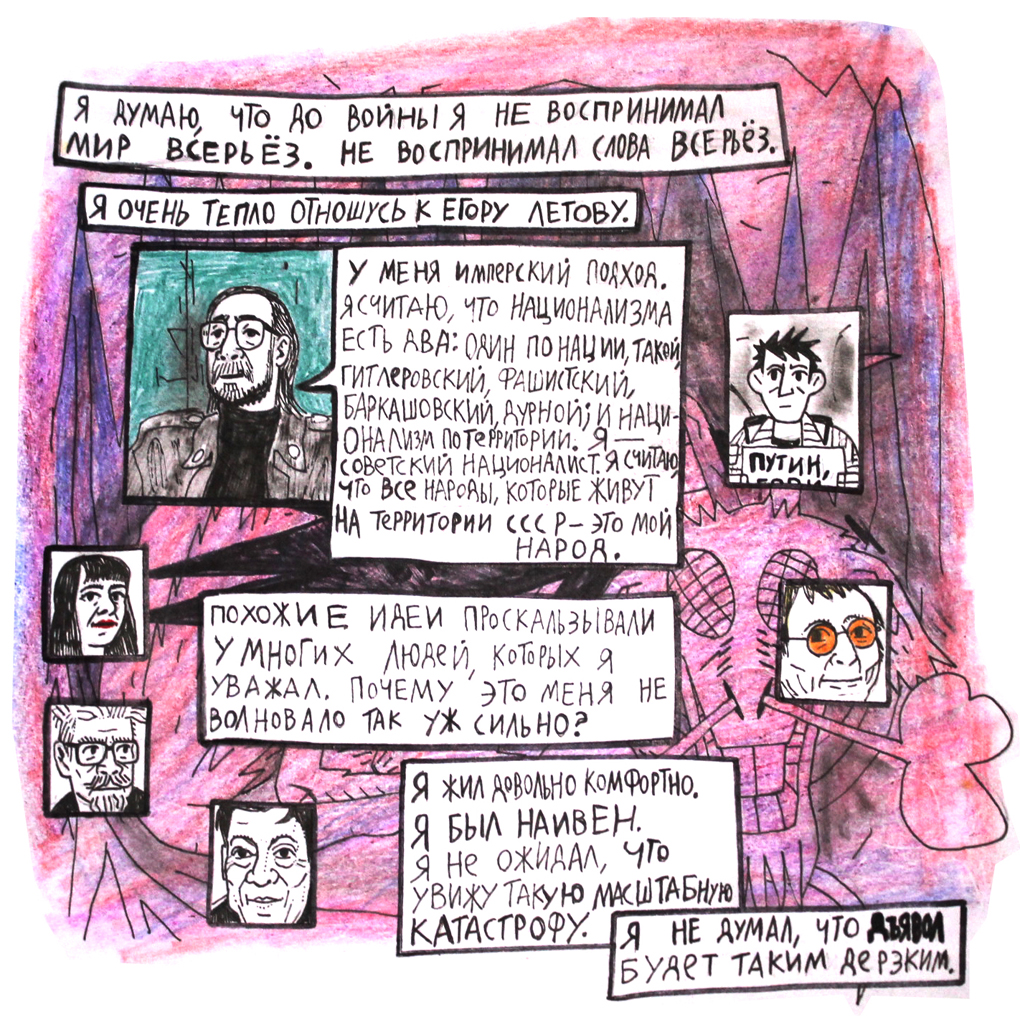 Я ДУМАЮ, ЧТО ДО ВОЙНЫ Я НЕ ВОСПРИНИМАЛ
МИР ВСЕРЬЁЗ. НЕ ВОСПРИНИМАЛ СЛОВА ВСЕРЬЁЗ.
Я ОЧЕНЬ ТЕПЛО ОТНОШУСЬ К ЕГОРУ ЛЕТОВУ.
У МЕНЯ ИМПЕРСКИЙ ПОДХОД.
Я СЧИТАЮ, ЧТО НАЦИОНАЛИЗМА
ЕСТЬ ДВА: ОДИН ПО НАЦИИ, ТАКОЙ,
ГИТЛЕРОВСКИЙ, ФАШИСТСКИЙ,
БАРКАШОВСКИЙ, ДУРНОЙ; И НАЦИ-
ОНАЛИЗМ ПО ТЕРРИТОРИИ. Я —
СОВЕТСКИЙ НАЦИОНАЛИСТ. Я СЧИТАЮ,
ЧТО ВСЕ НАРОДЫ, КОТОРЫЕ ЖИВУТ
НА ТЕРРИТОРИИ СССР – ЭТО МОЙ
НАРОД.
ПУТИН,
ПОХОЖИЕ ИДЕИ ПРОСКАЛЬЗЫВАЛИ
У МНОГИХ ЛЮДЕЙ, КОТОРЫХ Я
УВАЖАЛ. ПОЧЕМУ ЭТО МЕНЯ НЕ
ВОЛНОВАЛО ТАК УЖ СИЛЬНО?
Я ЖИЛ ДОВОЛЬНО КОМФОРТНО.
Я БЫЛ НАИВЕН.
Я НЕ ОЖИДАЛ, ЧТО
УВИЖУ ТАКУЮ МАСШТАБНУЮ
КАТАСТРОФУ.
Я НЕ ДУМАЛ, ЧТО ДЬЯВОЛ
БУДЕТ ТАКИМ ДЕРЗКИМ.